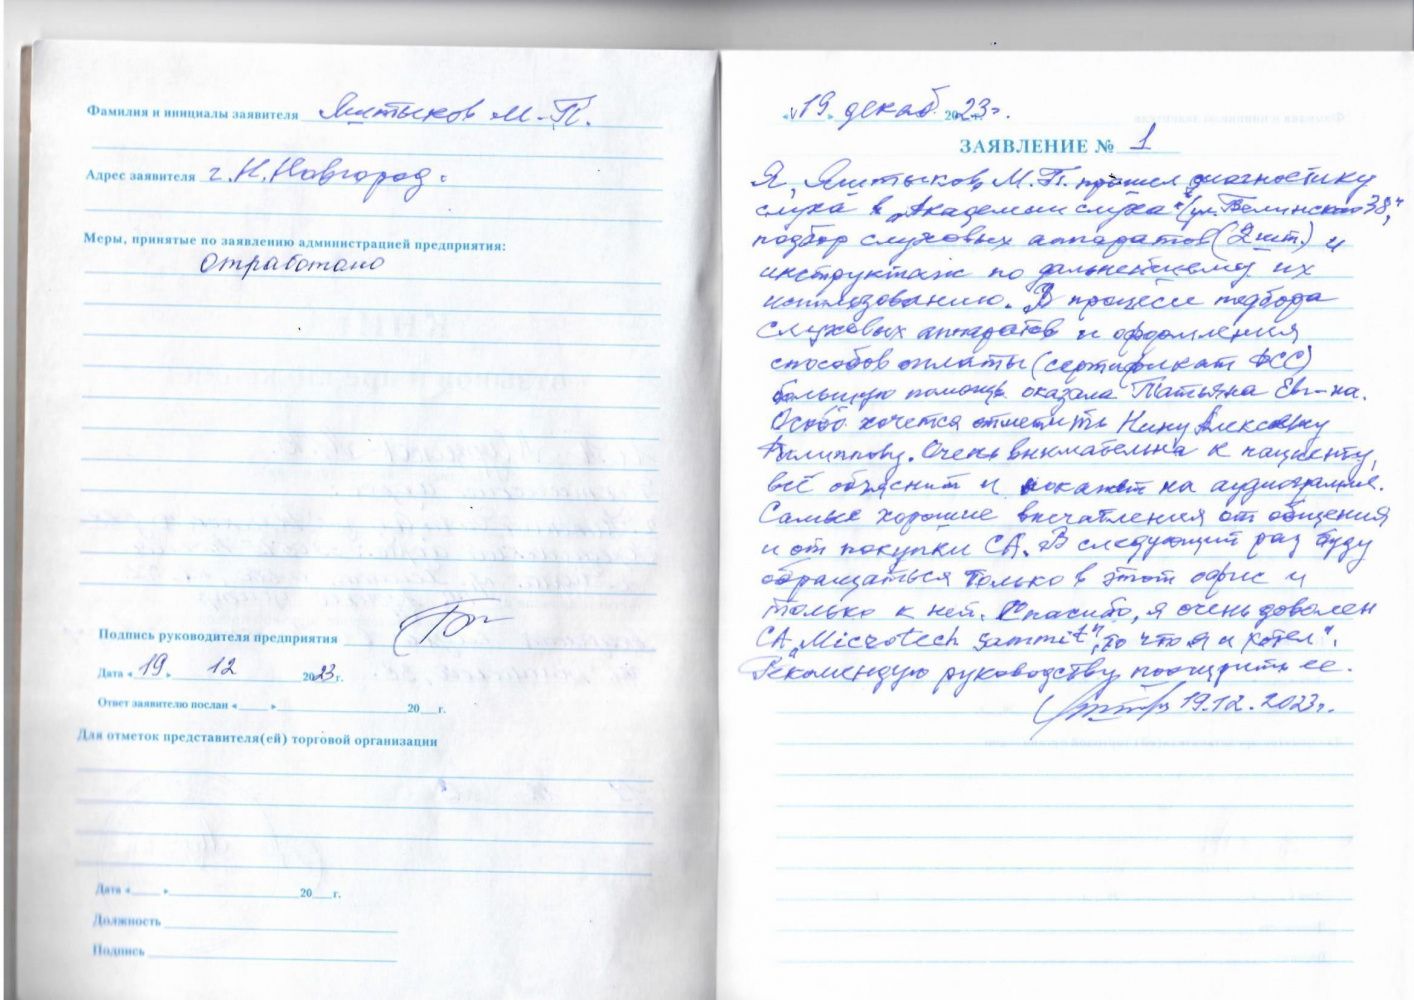 Фамилия и инициалы заявителя Яштыков М.П.
Адрес заявителя г. Н.Новгород.
Меры, принятые по заявлению администрацией предприятия:
Отработано
Подпись руководителя предприятия
Дата « 19 » 12 2023 г.
Ответ заявителю послан « » 20 г.
Для отметок представителя(ей) торговой организации
Дата « » 20 г.
Должность
Подпись
« 19 » декаб. 2023 г.
ЗАЯВЛЕНИЕ № 1
Я, Яштыков М.П. прошел диагностику
слуха в „Академии слуха" (ул. Белинского 38),
подбор слуховых аппаратов (2 шт.) и
инструктаж по дальнейшему их
использованию. В процессе подбора
слуховых аппаратов и оформления
способов оплаты (сертификат ФСС)
большую помощь оказала Татьяна Евг-на.
Особо хочется отметить Нину Алексевну
Филиппову. Очень внимательна к пациенту,
всё объяснит и покажет на аудиограмме.
Самые хорошие впечатления от общения
и от покупки СА. В следующий раз буду
обращаться только в этот офис и
только к ней. Спасибо, я очень доволен
СА „Microtech Sammit", „то что я и хотел".
Рекомендую руководству поощрить ее.
19.12.2023г.